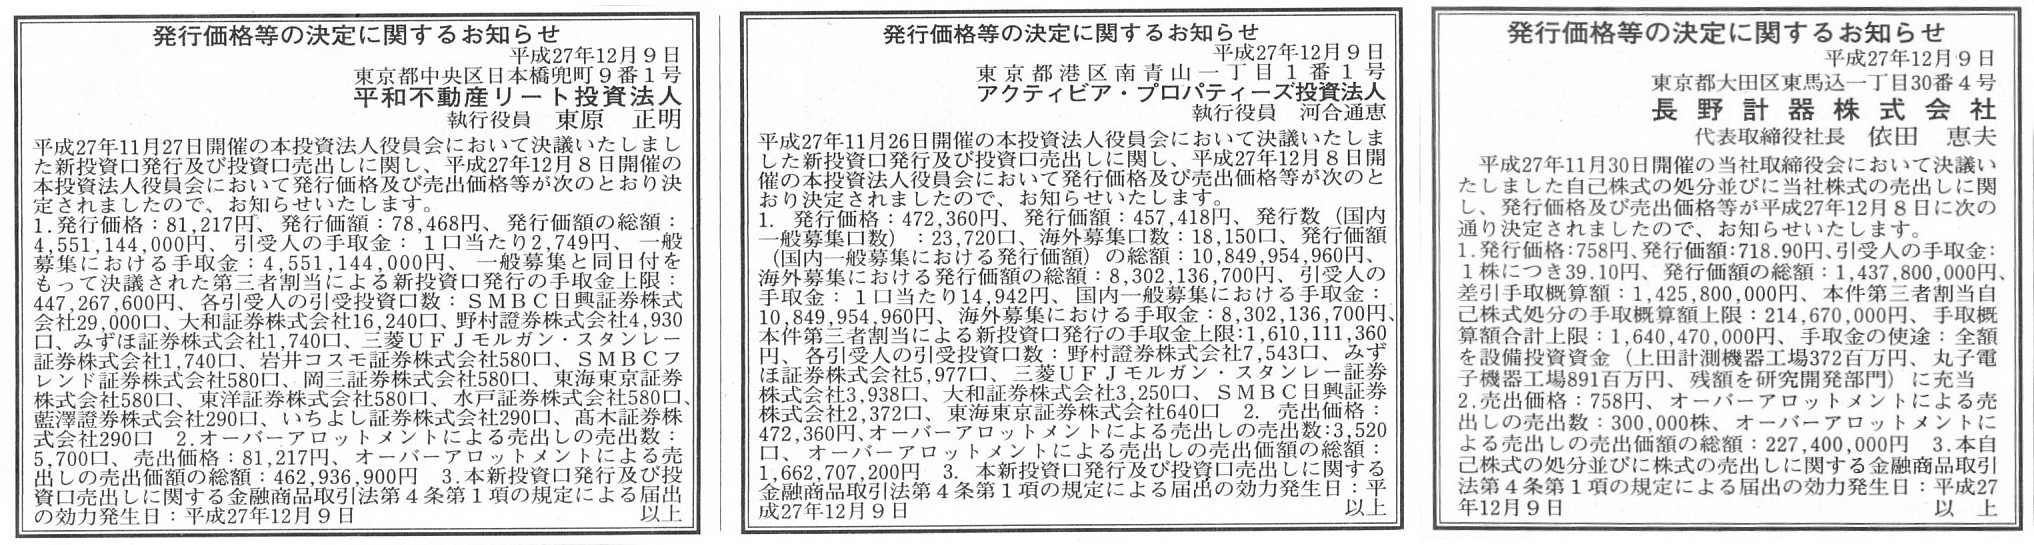 発行価格等の決定に関するお知らせ
平成27年12月９日
東京都中央区日本橋兜町９番１号
平和不動産リート投資法人
執行役員　東原　正明
平成27年11月27日開催の本投資法人役員会において決議いたしまし
た新投資口発行及び投資口売出しに関し、平成27年12月８日開催の
本投資法人役員会において発行価格及び売出価格等が次のとおり決
定されましたので、お知らせいたします。
1.発行価格：81,217円、発行価額：78,468円、発行価額の総額：
4,551,144,000円、引受人の手取金：１口当たり2,749円、一般
募集における手取金：4,551,144,000円、一般募集と同日付を
もって決議された第三者割当による新投資口発行の手取金上限：
447,267,600円、各引受人の引受投資口数：ＳＭＢＣ日興証券株式
会社29,000口、大和証券株式会社16,240口、野村證券株式会社4,930
口、みずほ証券株式会社1,740口、三菱ＵＦＪモルガン・スタンレー
証券株式会社1,740口、岩井コスモ証券株式会社580口、ＳＭＢＣフ
レンド証券株式会社580口、岡三証券株式会社580口、東海東京証券
株式会社580口、東洋証券株式会社580口、水戸証券株式会社580口、
藍澤證券株式会社290口、いちよし証券株式会社290口、髙木証券株
式会社290口　2.オーバーアロットメントによる売出しの売出数：
5,700口、売出価格：81,217円、オーバーアロットメントによる売
出しの売出価額の総額：462,936,900円　3.本新投資口発行及び投
資口売出しに関する金融商品取引法第４条第１項の規定による届出
の効力発生日：平成27年12月９日　以上
発行価格等の決定に関するお知らせ
平成27年12月９日
東京都港区南青山一丁目１番１号
アクティビア・プロパティーズ投資法人
執行役員　河合通恵
平成27年11月26日開催の本投資法人役員会において決議いたしま
した新投資口発行及び投資口売出しに関し、平成27年12月８日開
催の本投資法人役員会において発行価格及び売出価格等が次のと
おり決定されましたので、お知らせいたします。
1.　発行価格：472,360円、発行価額：457,418円、発行数（国内
一般募集口数）：23,720口、海外募集口数：18,150口、発行価額
（国内一般募集における発行価額）の総額：10,849,954,960円、
海外募集における発行価額の総額：8,302,136,700円、引受人の
手取金：１口当たり14,942円、国内一般募集における手取金：
10,849,954,960円、海外募集における手取金：8,302,136,700円、
本件第三者割当による新投資口発行の手取金上限：1,610,111,360
円、各引受人の引受投資口数：野村證券株式会社7,543口、みず
ほ証券株式会社5,977口、三菱ＵＦＪモルガン・スタンレー証券
株式会社3,938口、大和証券株式会社3,250口、ＳＭＢＣ日興証券
株式会社2,372口、東海東京証券株式会社640口　2.　売出価格：
472,360円、オーバーアロットメントによる売出しの売出数：3,520
口、オーバーアロットメントによる売出しの売出価額の総額：
1,662,707,200円　3.　本新投資口発行及び投資口売出しに関する
金融商品取引法第４条第１項の規定による届出の効力発生日：平
成27年12月９日　以上
発行価格等の決定に関するお知らせ
平成27年12月９日
東京都大田区東馬込一丁目30番４号
長野計器株式会社
代表取締役社長　依田　恵夫
平成27年11月30日開催の当社取締役会において決議い
たしました自己株式の処分並びに当社株式の売出しに関
し、発行価格及び売出価格等が平成27年12月８日に次の
通り決定されましたので、お知らせいたします。
1.発行価格：758円、発行価額：718.90円、引受人の手取金：
１株につき39.10円、発行価額の総額：1,437,800,000円、
差引手取概算額：1,425,800,000円、本件第三者割当自
己株式処分の手取概算額上限：214,670,000円、手取概
算額合計上限：1,640,470,000円、手取金の使途：全額
を設備投資資金（上田計測機器工場372百万円、丸子電
子機器工場891百万円、残額を研究開発部門）に充当
2.売出価格：758円、オーバーアロットメントによる売
出しの売出数：300,000株、オーバーアロットメントに
よる売出しの売出価額の総額：227,400,000円　3.本自
己株式の処分並びに株式の売出しに関する金融商品取引
法第４条第１項の規定による届出の効力発生日：平成27
年12月９日　以　上